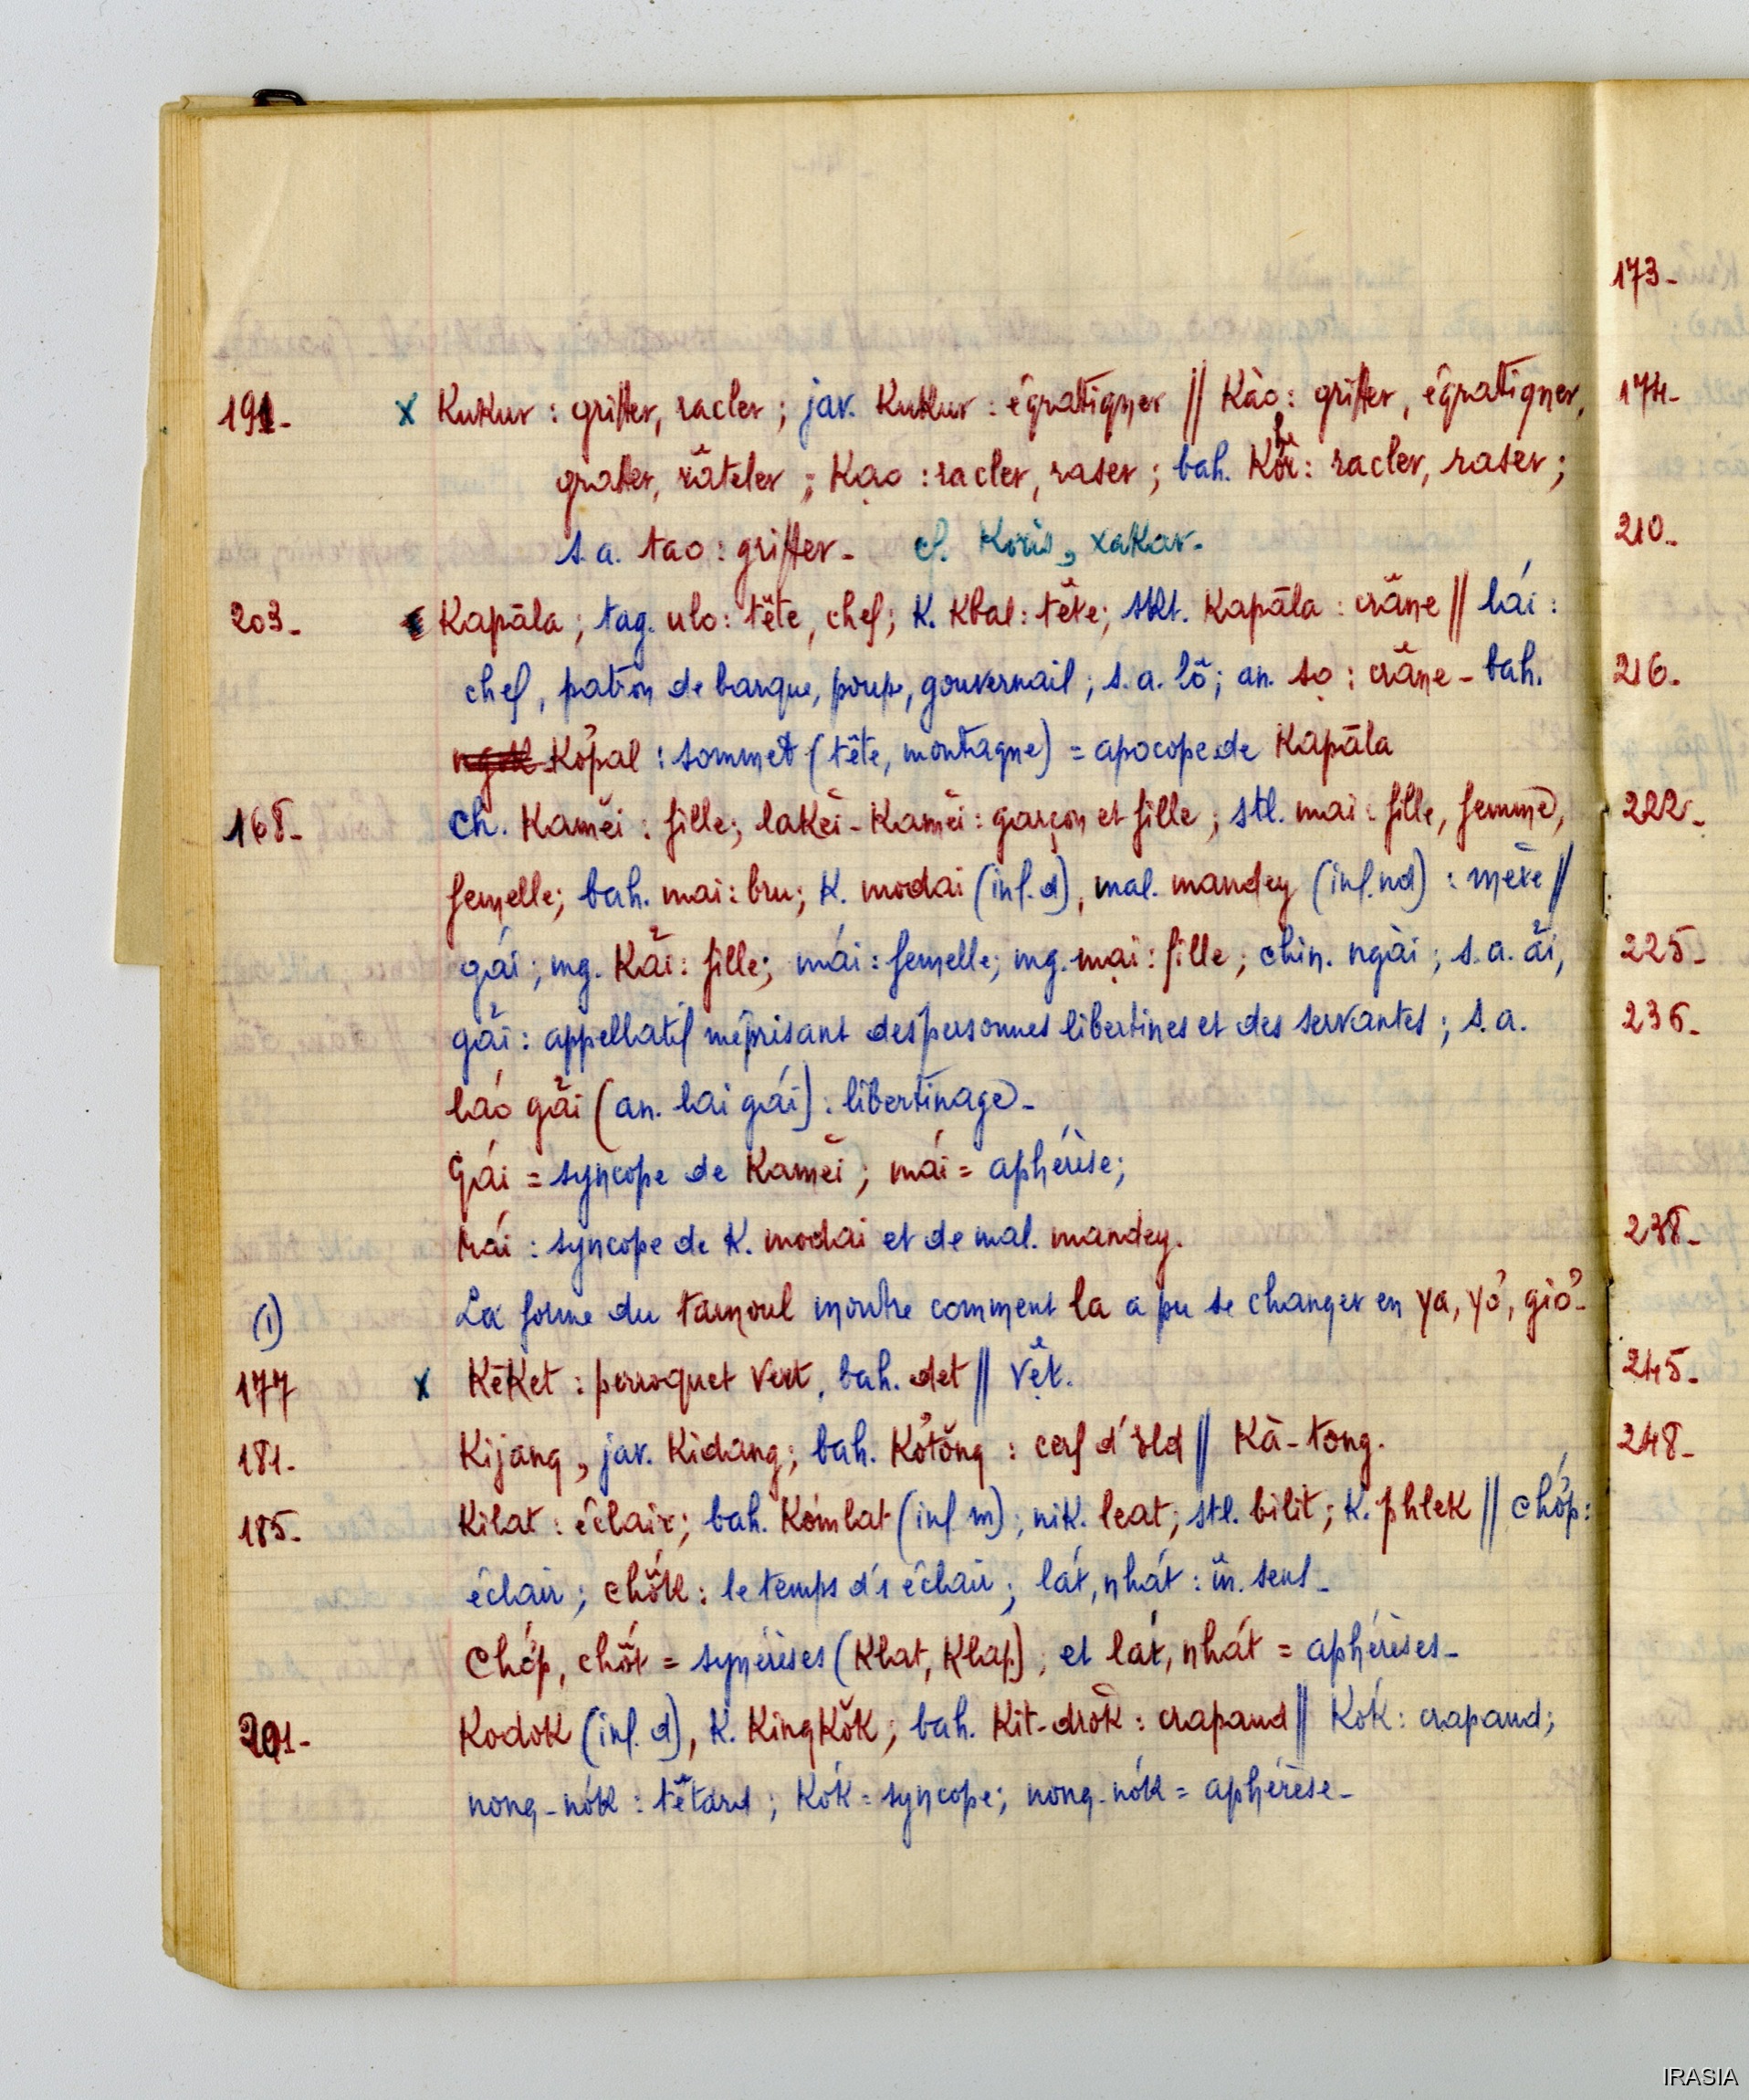 191- x Kukur : griffer, racler ; jav. Kukur : égratigner // Kào : griffer, égratigner,
gratter, râteler ; Kạo : racler, raser ; bah. : racler, raser ;
s.a. tao : griffer - cf. Koris, xakar.
203- Kapāla ; tag. ulo : tête, chef ; K. Kbal : tête ; skt. Kapāla : crâne // lái :
chef, patron de barque, poupe, gouvernail ; s.a. lõ ; an. sọ : crâne - bah.
Kơ̆pal : sommet (tête, montagne) = apocope de Kapāla
168- Ch. Kamĕi : fille ; lakĕi - Kamĕi : garçon et fille ; stl. mai : fille, femme,
femelle ; bah. mai : bru ; K. modai (inf. d), mal. mandey (inf. nd) : mère //
gái ; mg. Kải : fille ; mái : femelle ; mg. mại : fille ; chin. ngài ; s.a. ải,
gải : appellatif méprisant des personnes libertines et des servantes ; s.a.
láo gải (an. lai gái) : libertinage -
Gái = syncope de Kamĕi ; mái = aphérèse ;
Mái : syncope de K. modai et de mal. mandey.
(1) La forme du tamoul montre comment la a pu se changer en ya, yở, giở -
177 x Kēket : perroquet vert, bah. det // Vẹ̆t.
181- Kijang, jav. Kidang ; bah. Kơ̆tŏng : cerf d'Eld // Kà-tong.
185- Kilat : éclair ; bah. Kơmlat (inf m) ; nik. leat ; stl. bilit ; K. phlek // chớp :
éclair ; : le temps d'1 éclair ; lát, nhát : m. sens -
Chớp, = synérèses (Klat, Klap), et lát, nhát = aphérèses -
201- Kodok (inf. d), K. KingKŏk ; bah. Kit-drŏk : crapaud // Kók : crapaud ;
nong-nók : têtard ; Kók = syncope ; nong-nók = aphérèse -
173-
174-
210-
216-
222-
225-
236-
238-
245-
248-
IRASIA